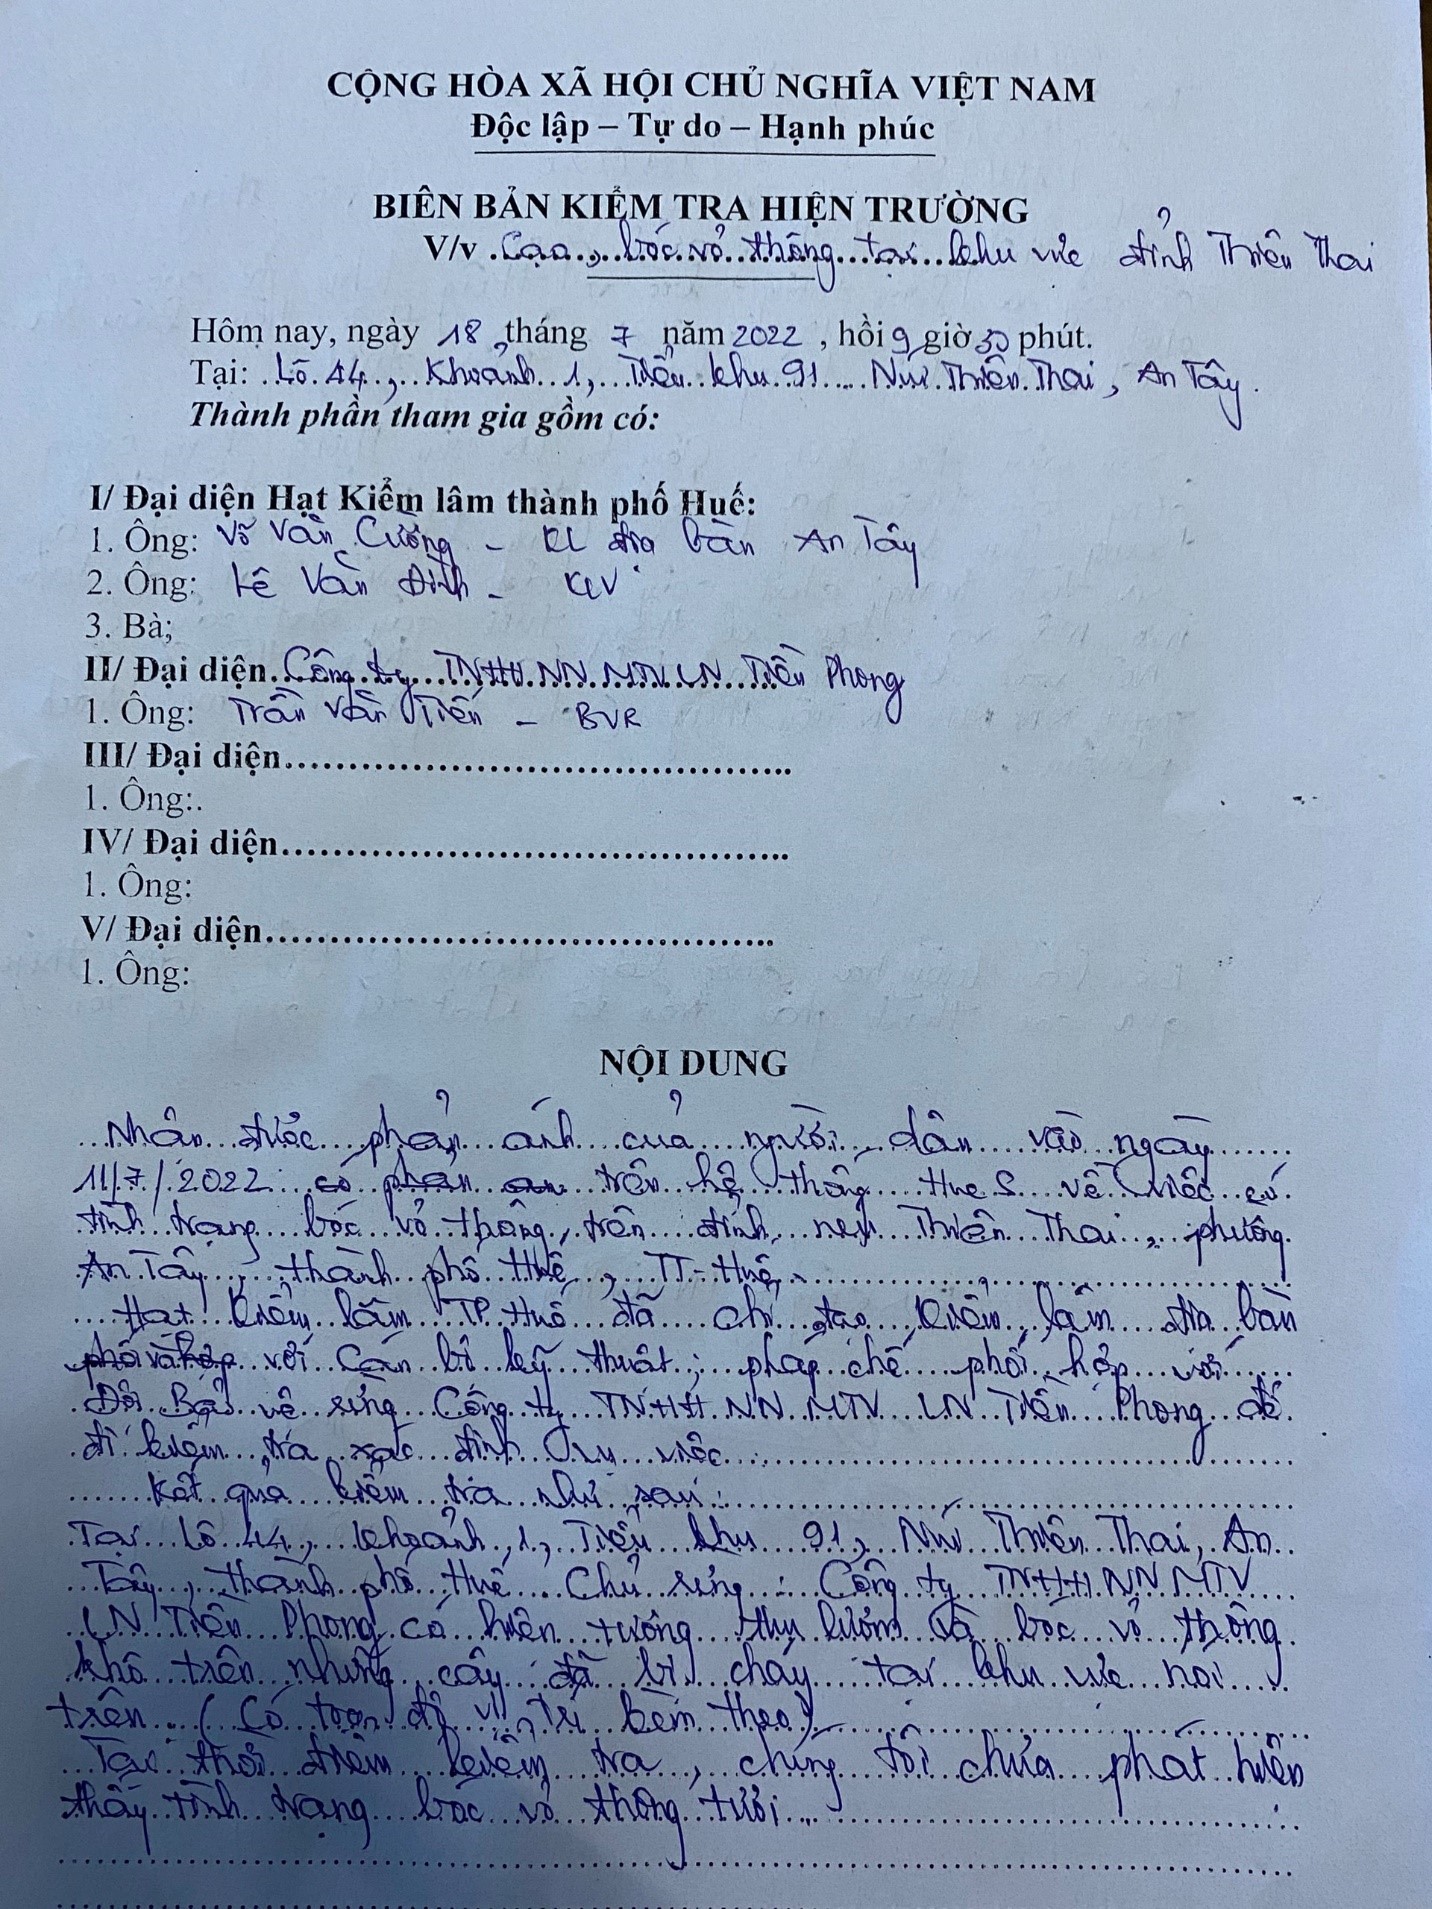 CỘNG HÒA XÃ HỘI CHỦ NGHĨA VIỆT NAM
Độc lập – Tự do – Hạnh phúc
BIÊN BẢN KIỂM TRA HIỆN TRƯỜNG
V/v Cạo, bóc vỏ thông tại khu vực đỉnh Thiên Thai
Hôm nay, ngày 18 tháng 7 năm 2022, hồi 9 giờ 30 phút.
Tại: Lô 44, Khoảnh 1, Tiểu khu 91 Núi Thiên Thai, An Tây.
Thành phần tham gia gồm có:
I/ Đại diện Hạt Kiểm lâm thành phố Huế:
1. Ông: Võ Văn Cường - KL địa bàn An Tây
2. Ông: Lê Văn Định - KLV
3. Bà;
II/ Đại diện Công ty TNHH NN MTV LN Tiền Phong
1. Ông: Trần Văn Tiến - BVR
III/ Đại diện.............................................
1. Ông:.
IV/ Đại diện.............................................
1. Ông:
V/ Đại diện.............................................
1. Ông:
NỘI DUNG
Nhận được phản ánh của người dân vào ngày
11/7/2022 trên hệ thống Hue S về việc có
tình trạng bóc vỏ thông trên đỉnh núi Thiên Thai, phường
An Tây, thành phố Huế, TT-Huế.
Hạt Kiểm lâm TP Huế đã chỉ đạo Kiểm lâm địa bàn
với Cán bộ kỹ thuật, pháp chế phối hợp với
Đội Bảo vệ rừng Công ty TNHH NN MTV LN Tiền Phong để
đi kiểm tra xác định vụ việc.
Kết quả kiểm tra như sau:
Tại Lô 44, khoảnh 1, Tiểu khu 91, Núi Thiên Thai, An
Tây, thành phố Huế Chủ rừng: Công ty TNHH NN MTV
LN Tiền Phong có hiện tượng thu lượm và bóc vỏ thông
khô trên những cây đã bị cháy tại khu vực nói
trên. (Có tọa độ vị trí kèm theo)
Tại thời điểm kiểm tra, chúng tôi chưa phát hiện
thấy tình trạng bóc vỏ thông tươi.